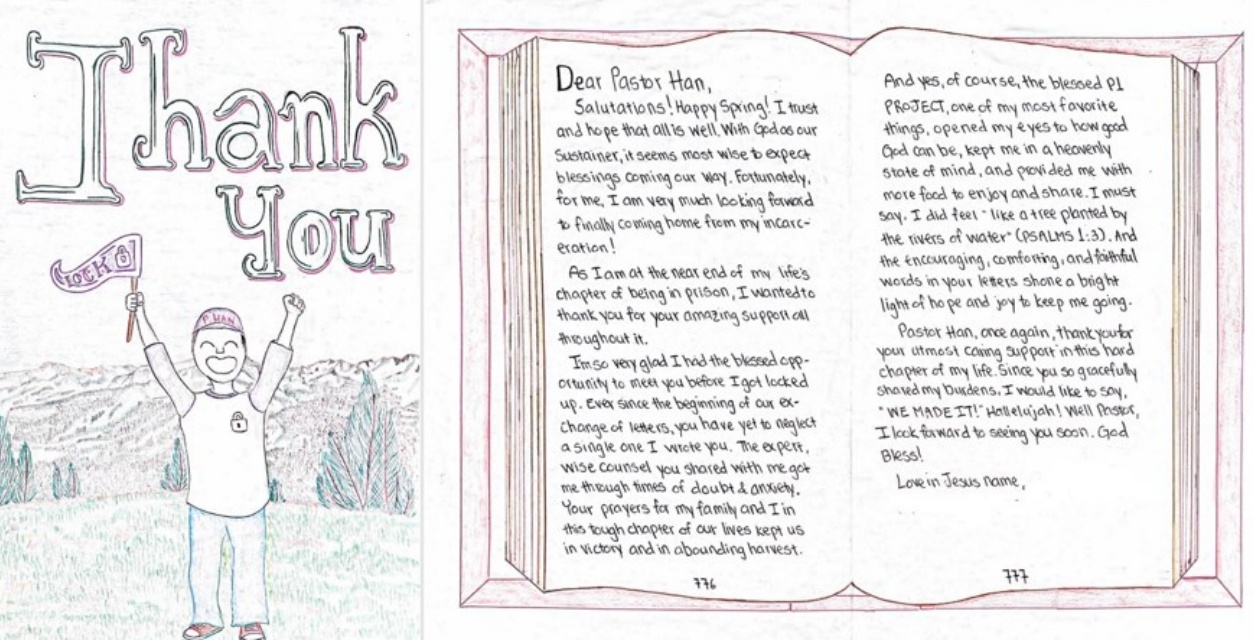 Thank
You
P. HAN
Dear Pastor Han,
Salutations! Happy Spring! I trust
and hope that all is well. With God as our
Sustainer, it seems most wise to expect
blessings coming our way. Fortunately,
for me, I am very much looking forward
to finally coming home from my incarc-
eration!
As I am at the near end of my life's
chapter of being in prison, I wanted to
thank you for your amazing support all
throughout it.
I'm so very glad I had the blessed opp-
ortunity to meet you before I got locked
up. Ever since the beginning of our ex-
change of letters, you have yet to neglect
a single one I wrote you. The expert,
wise counsel you shared with me got
me through times of doubt & anxiety.
Your prayers for my family and I in
this tough chapter of our lives kept us
in victory and in abounding harvest.
776
And yes, of course, the blessed P1
PROJECT, one of my most favorite
things, opened my eyes to how good
God can be, kept me in a heavenly
state of mind, and provided me with
more food to enjoy and share. I must
say, I did feel "like a tree planted by
the rivers of water" (PSALMS 1:3). And
the encouraging, comforting, and faithful
words in your letters shone a bright
light of hope and joy to keep me going.
Pastor Han, once again, thank you for
your utmost caring support in this hard
chapter of my life. Since you so gracefully
shared my burdens, I would like to say,
"WE MADE IT!" Hallelujah! Well Pastor,
I look forward to seeing you soon. God
Bless!
Love in Jesus name,
777